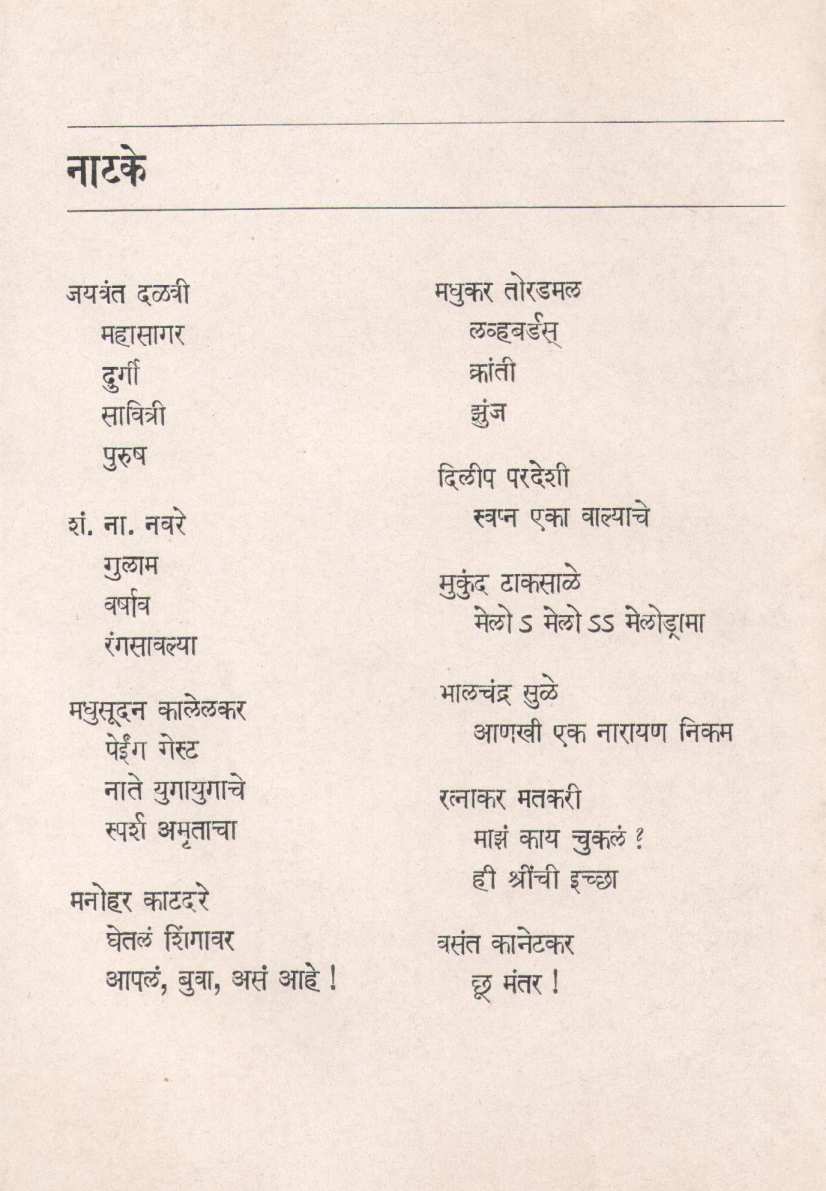 नाटके
जयवंत दळवी
महासागर
दुर्गी
सावित्री
पुरुष
शं. ना. नवरे
गुलाम
वर्षाव
रंगसावल्या
मधुसूदन कालेलकर
पेईंग गेस्ट
नाते युगायुगाचे
स्पर्श अमृताचा
मनोहर काटदरे
घेतलं शिंगावर
आपलं, बुवा, असं आहे !
मधुकर तोरडमल
लव्हबर्डस्
क्रांती
झुंज
दिलीप परदेशी
स्वप्न एका वाल्याचे
मुकुंद टाकसाळे
मेलो ऽ मेलो ऽऽ मेलोड्रामा
भालचंद्र सुळे
आणखी एक नारायण निकम
रत्नाकर मतकरी
माझं काय चुकलं ?
ही श्रींची इच्छा
वसंत कानेटकर
छू मंतर !